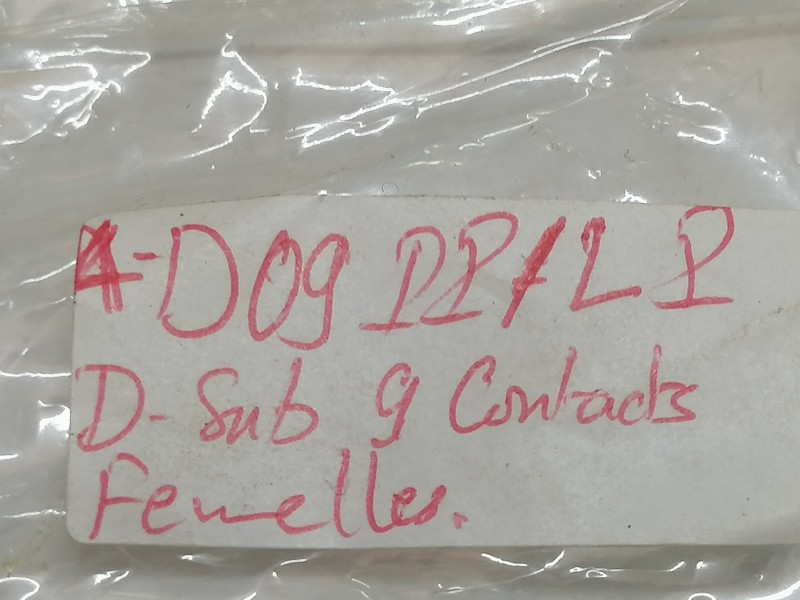 4-D09 PP/LP
D-Sub 9 Contacts
Femelles.